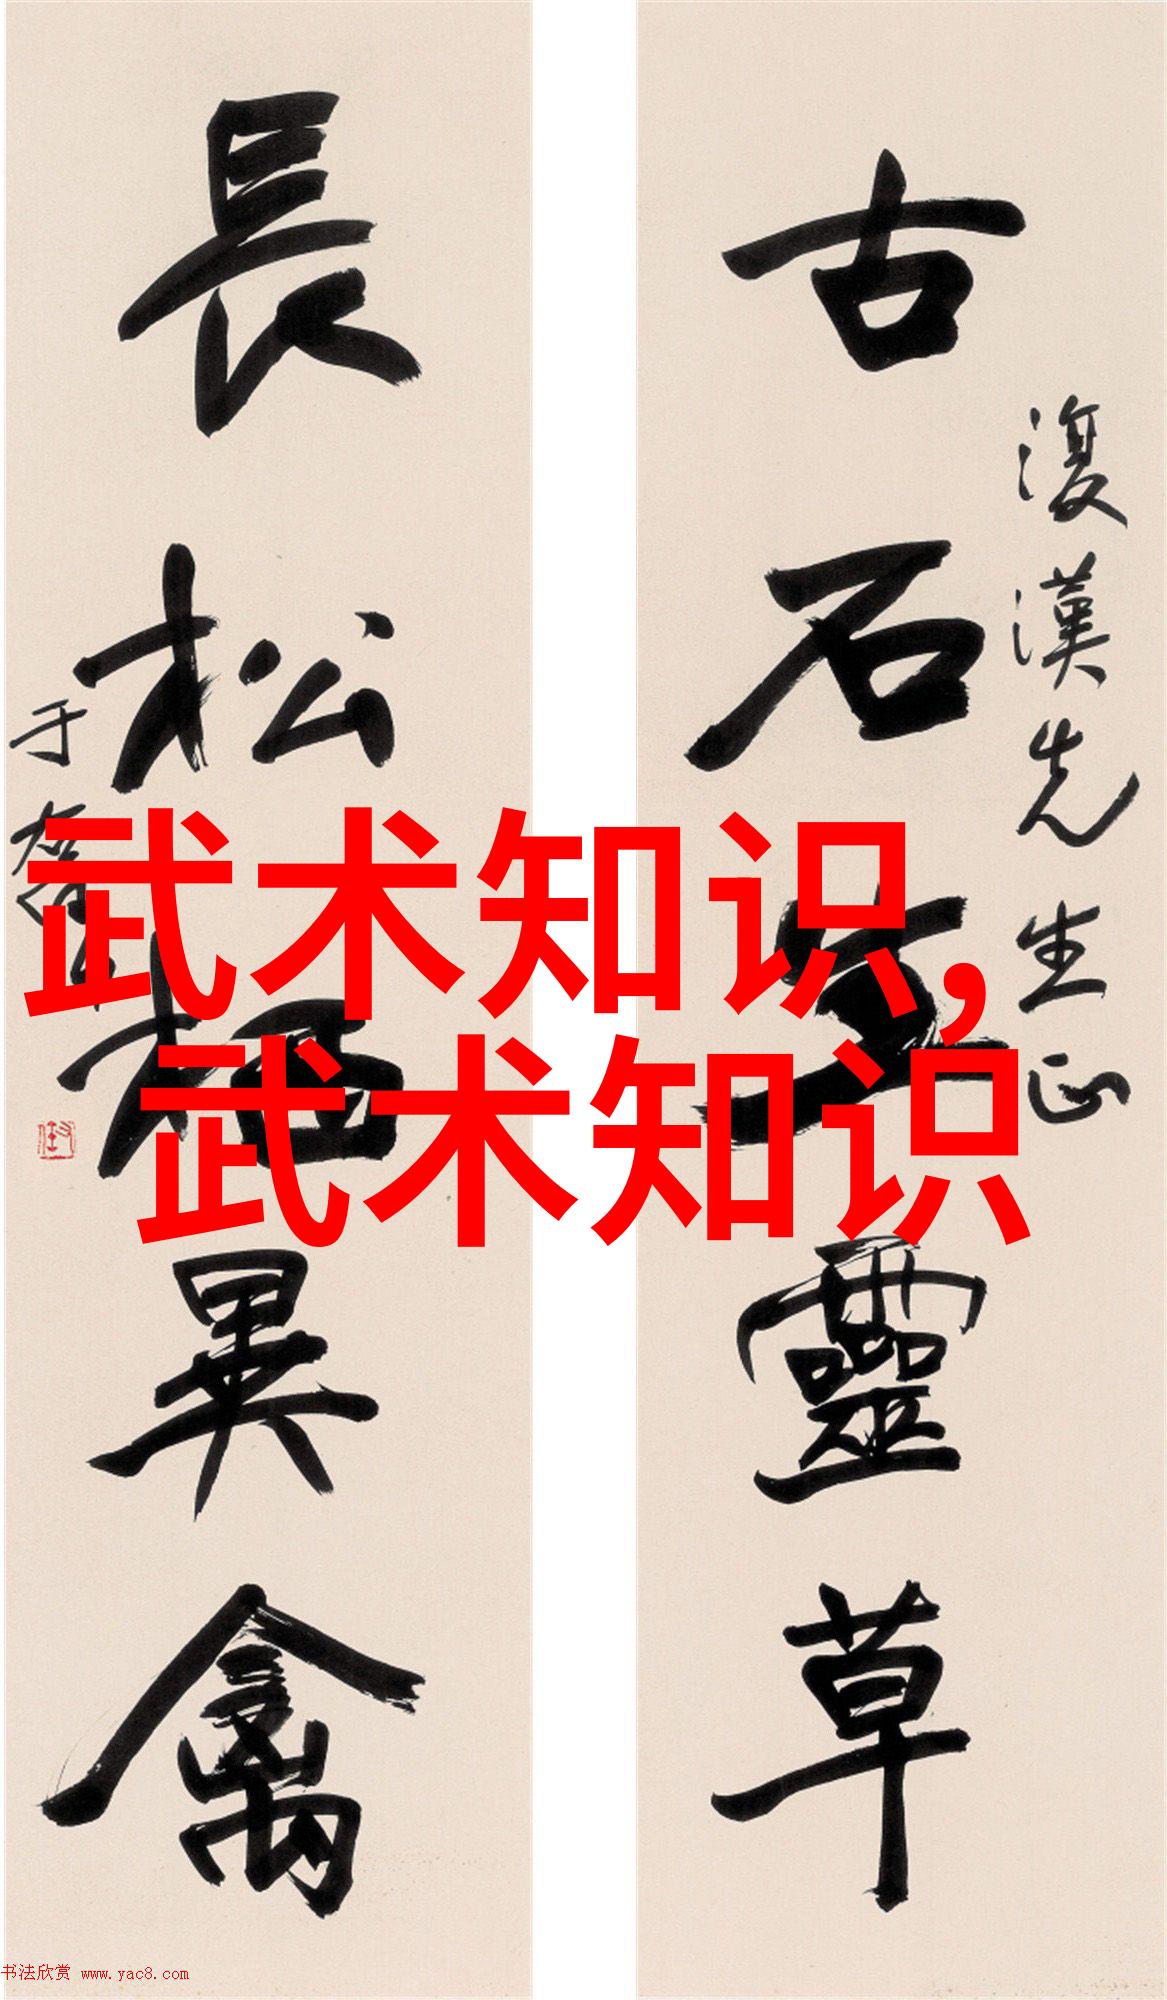 古石生靈草
復漢先生正
長松栖異禽
于右任
武术知识,
武术知识
书法欣赏 www.yac8.com